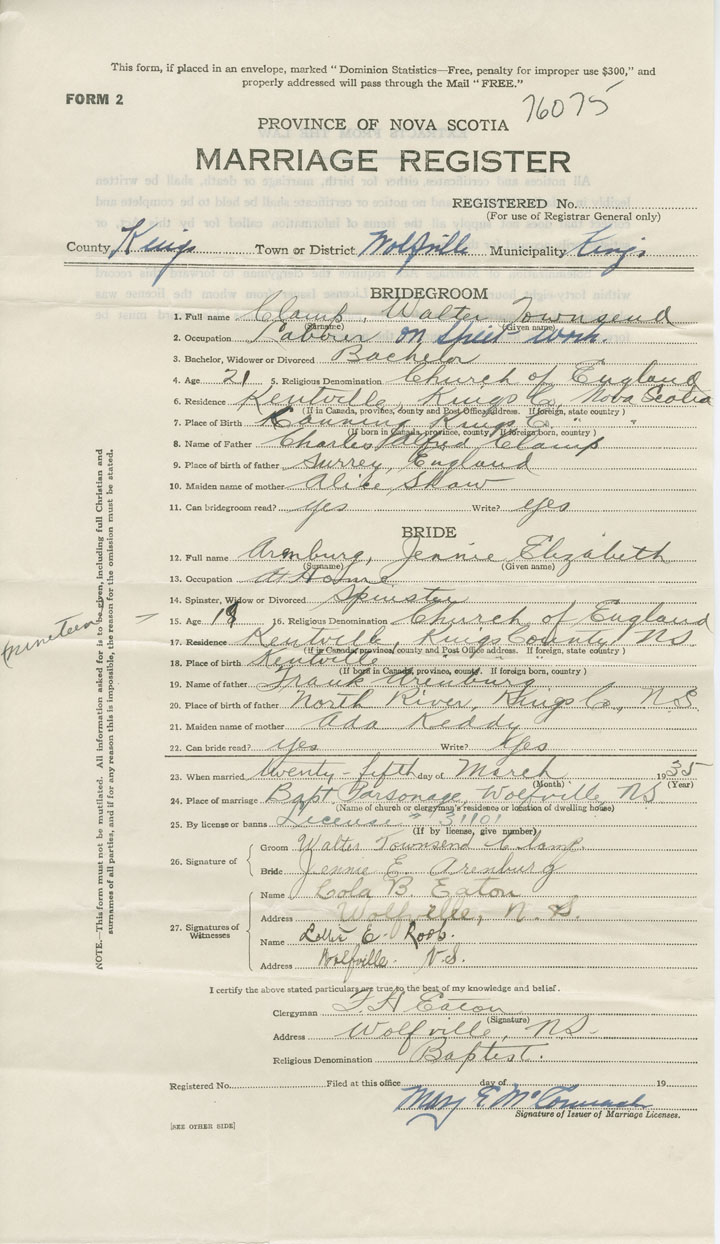 This form, if placed in an envelope, marked " Dominion Statistics—Free, penalty for improper use $300," and
properly addressed will pass through the Mail " FREE."
FORM 2
76075
PROVINCE OF NOVA SCOTIA
MARRIAGE REGISTER
REGISTERED No.
(For use of Registrar General only)
County Kings Town or District Wolfville Municipality Kings
BRIDEGROOM
1. Full name Clamp, Walter Townsend
(Surname) (Given name)
2. Occupation Labourer on Street work.
3. Bachelor, Widower or Divorced Bachelor
4. Age 21 5. Religious Denomination Church of England
6. Residence Kentville, Kings Co, Nova Scotia
(If in Canada, province, county and Post Office Address. If foreign, state country )
7. Place of Birth Canning Kings Co. "
(If born in Canada, province, county. If foreign born, country )
8. Name of Father Charles Alfred Clamp
9. Place of birth of father Surrey, England
10. Maiden name of mother Alice Shaw
11. Can bridegroom read? yes Write? yes
BRIDE
12. Full name Arenburg, Jennie Elizabeth
(Surname) (Given name)
13. Occupation At Home
14. Spinster, Widow or Divorced Spinster
nineteen —
15. Age 19 16. Religious Denomination Church of England
17. Residence Kentville, Kings County, NS
(If in Canada, province, county and Post Office address. If foreign, state country )
18. Place of birth Kentville "
(If born in Canada, province, county. If foreign born, country )
19. Name of father Frank Arenburg
20. Place of birth of father North River, Kings Co, N.S
21. Maiden name of mother Ada Keddy
22. Can bride read? yes Write? Yes
23. When married twenty-fifth day of March 1935
(Month) (Year)
24. Place of marriage Bapt Parsonage, Wolfville, NS
(Name of church or clergyman's residence or location of dwelling house)
25. By license or banns License # 31101
(If by license, give number)
26. Signature of
Groom Walter Townsend Clamp.
Bride Jennie E. Arenburg
27. Signatures of Witnesses
Name Lola B. Eaton
Address Wolfville, N. S.
Name E.
Address Wolfville. N.S.
I certify the above stated particulars are true to the best of my knowledge and belief.
Clergyman F. H Eaton
(Signature)
Address Wolfville, NS-
Religious Denomination Baptist.
Registered No. Filed at this office day of 19
Mary E McCormack
Signature of Issuer of Marriage Licenses.
[SEE OTHER SIDE]
NOTE.—This form must not be mutilated. All information asked for is to be given, including full Christian and
surnames of all parties, and if for any reason this is impossible, the reason for the omission must be stated.